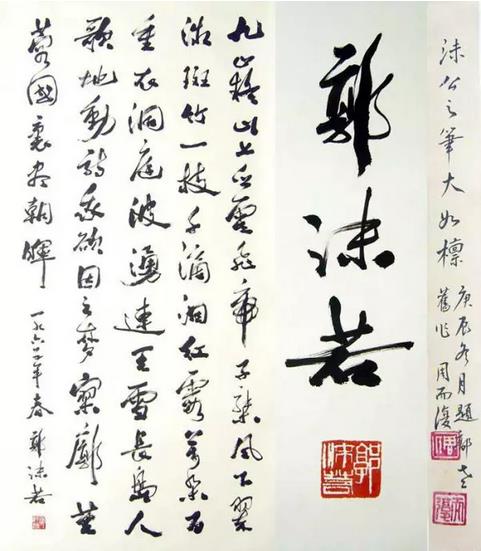 沫公之筆大如椽
庚辰冬月題郭老
舊作 周而復
郭沫若
郭沫若
九嶷山上白雲飛帝子乘風下翠
微斑竹一枝千滴泪紅霞萬朵百
重衣洞庭波湧連天雪長島人
歌地動詩我欲因之夢寥廓芙
蓉國裏盡朝暉 一九六二年春 郭沫若